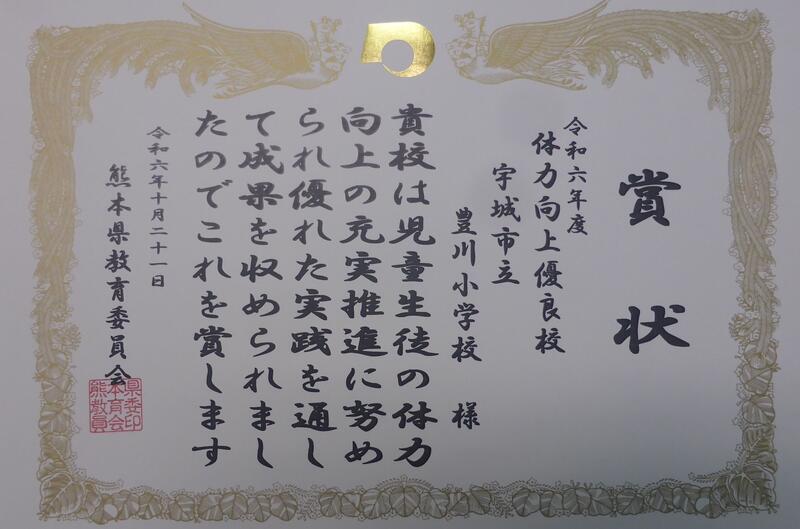 賞状
令和六年度
体力向上優良校
宇城市立
豊川小学校 様
貴校は児童生徒の体力
向上の充実推進に努め
られ優れた実践を通し
て成果を収められまし
たのでこれを賞します
令和六年十月二十一日
熊本県教育委員会
県委印
本育会
熊教員